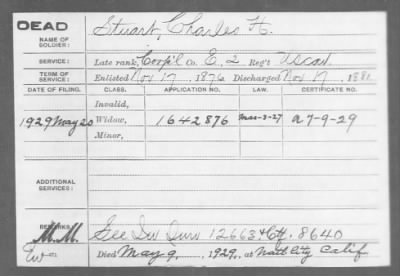 DEAD
NAME OF SOLDIER: Stuart, Charles H.
SERVICE: Late rank, Corp'l Co. E, 2 Reg't US Cav.
TERM OF SERVICE: Enlisted Nov 17, 1876 Discharged Nov 17, 1881
DATE OF FILING. CLASS. APPLICATION NO. LAW. CERTIFICATE NO.
Invalid,
1929 May 20 Widow, 1642876 Mar-3-27 A 7-9-29
Minor,
ADDITIONAL SERVICES:
REMARKS: See Inv Surv 12663 Ctf. 8640
M.M.
Died May 9, 1929, at Natl City Calif